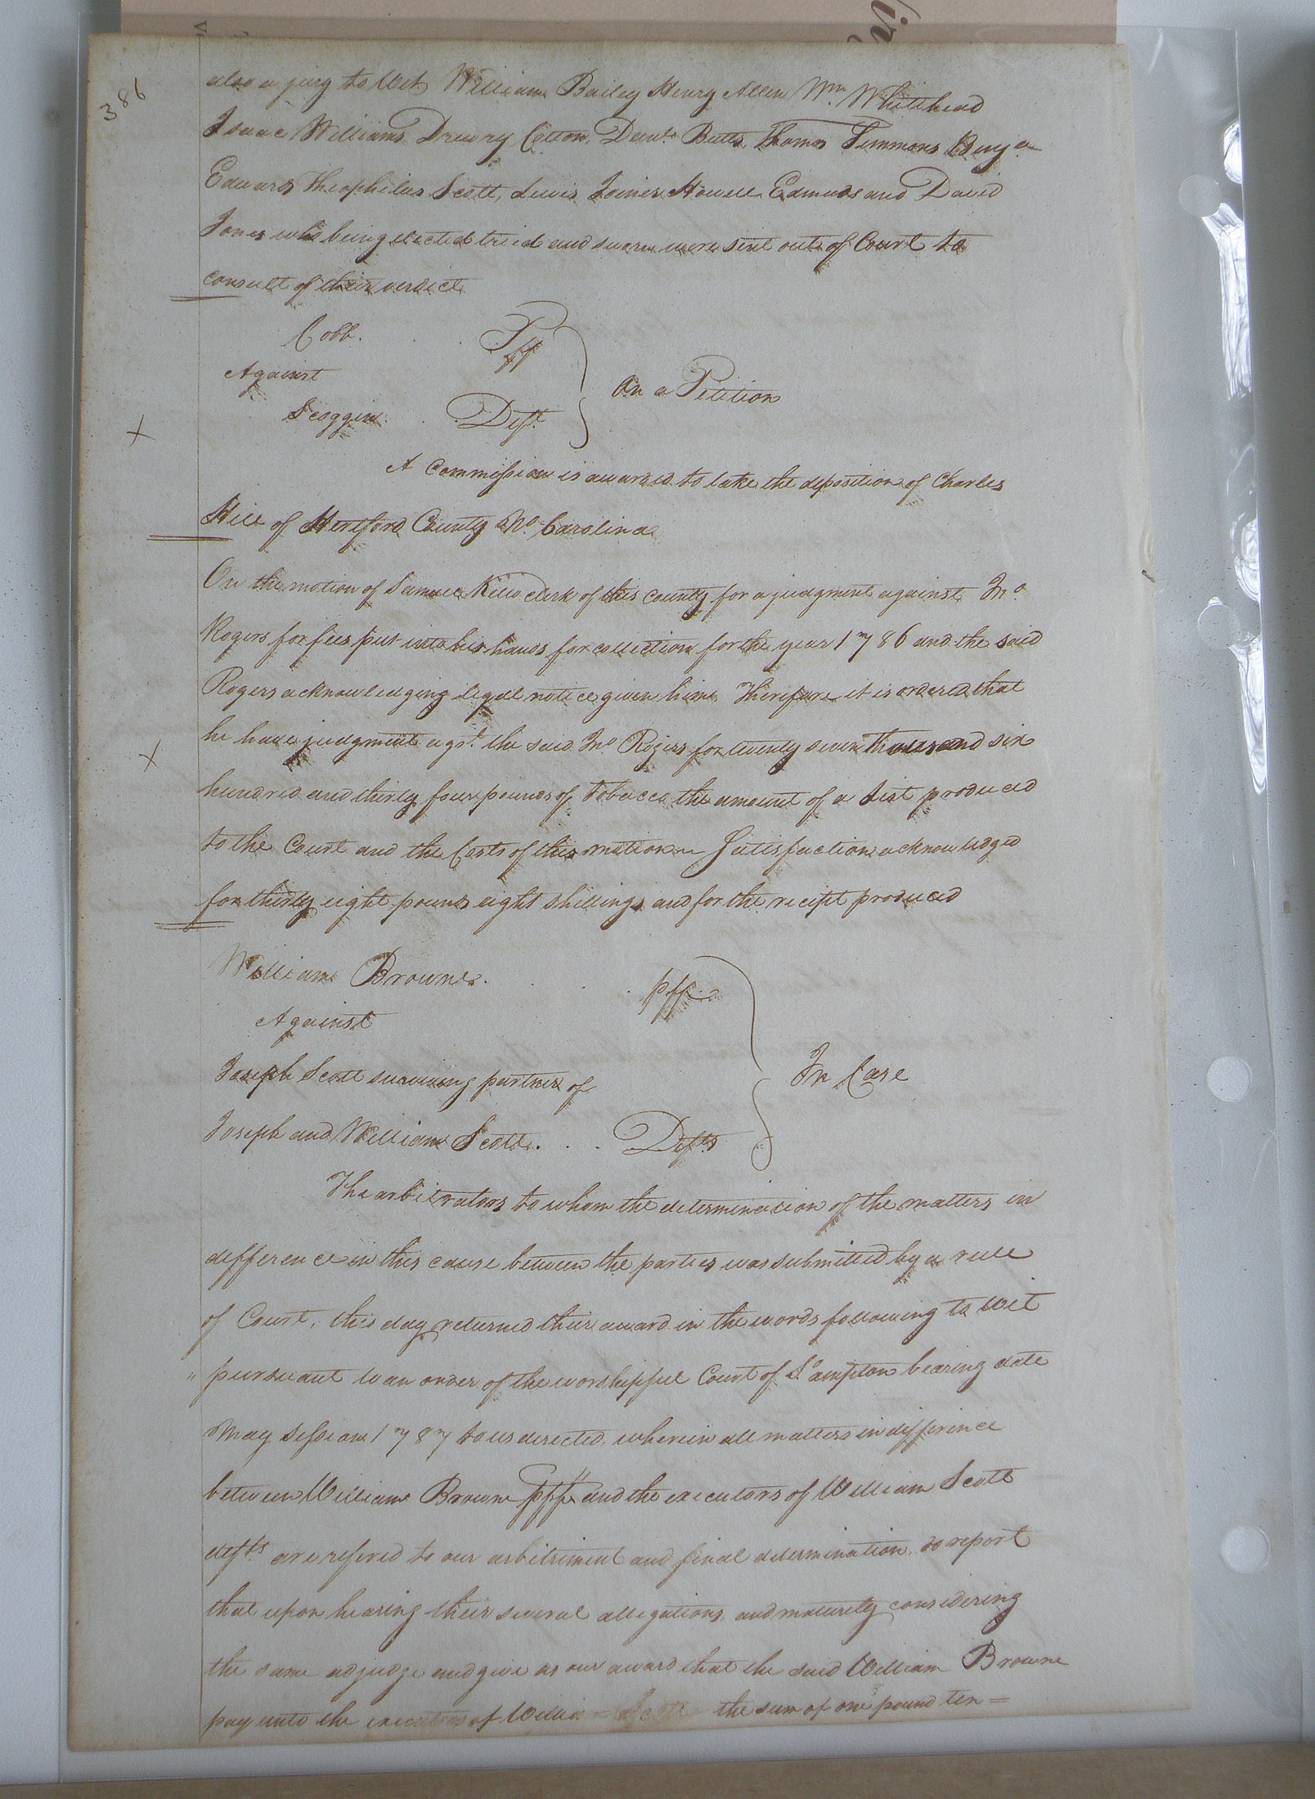 386
also a jury to Wit William Bailey Henry Allen Wm. Whitehead
Isaac Williams Drewry Cotton, Danl. Butts, Thomas Simmons Benja
Edwards Theophilus Scott, Lewis Joiner Howell Edmuds and David
Jones who being elected tried and sworn were sent out of Court to
consult of their verdict
Cobb. Pff
Against
On a Petition
Scoggin. Deft.
A Commission is awarded to take the deposition of Charles
Hill of Hertford County No. Carolina
On the motion of Samuel Kello clerk of this county for a judgment against Jno.
Rogers for fees put into his hands for collection for the year 1786 and the said
Rogers acknowledging legal notice given him Therefore it is ordered that
he have judgment agst. the said Jno Rogers for twenty seven thousand six
hundred and thirty four pounds of Tobacco the amount of a List produced
to the Court and the Costs of this motion Satisfaction acknowledged
for thirty eight pounds eight shillings and for the reciept produced
William Browne. pff.
Against
In Case
Joseph Scott surviving partner of
Joseph and William Scott. Defts
The arbitrators to whom the determination of the matters in
difference in this cause between the parties was submitted by a rule
of Court, this day returned their award in the words following to wit
" pursuant to an order of the worshipful Court of So.ampton bearing date
May Session 1787 to us directed, wherein all matters in diffirince
between William Browne pff and the executors of William Scott
defts are refered to our arbitriment and final determination, do report
that upon hearing their several allegations and maturely considering
the same adjudge and give as our award that the said William Browne
pay unto the executors of Willia Scott the sum of one pound ten=